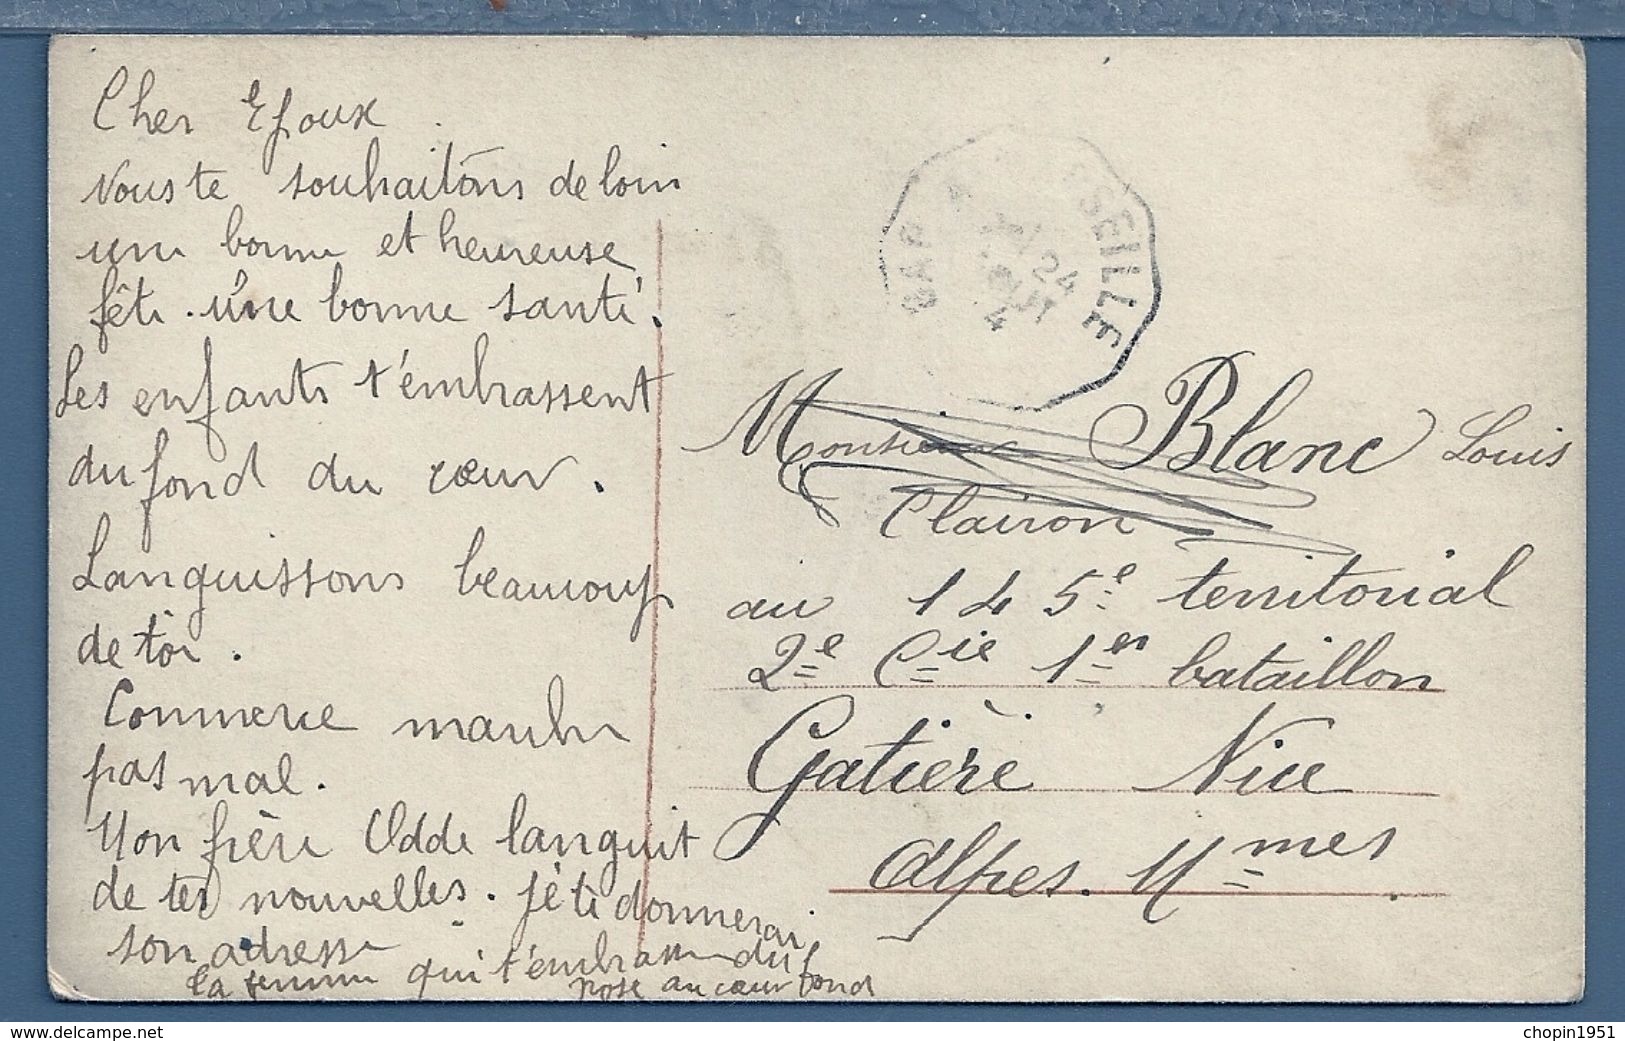 Cher Epoux.
Nous te souhaitons de loin
une bonne et heureuse
fête. une bonne santé.
Les enfants t'embrassent
du fond du cœur.
Languissons beaucoup
de toi.
Commerce marche
pas mal.
Mon frère Odde languit
de tes nouvelles. je te donnerai
son adresse
la femme qui t'embrasse du fond
au cœur
GAP A MARSEILLE
24
4
Monsieur Blanc Louis
Clairon
au 145e territorial
2e Cie 1er bataillon
Gatière Nice
Alpes. Mmes
www.delcampe.net
chopin1951